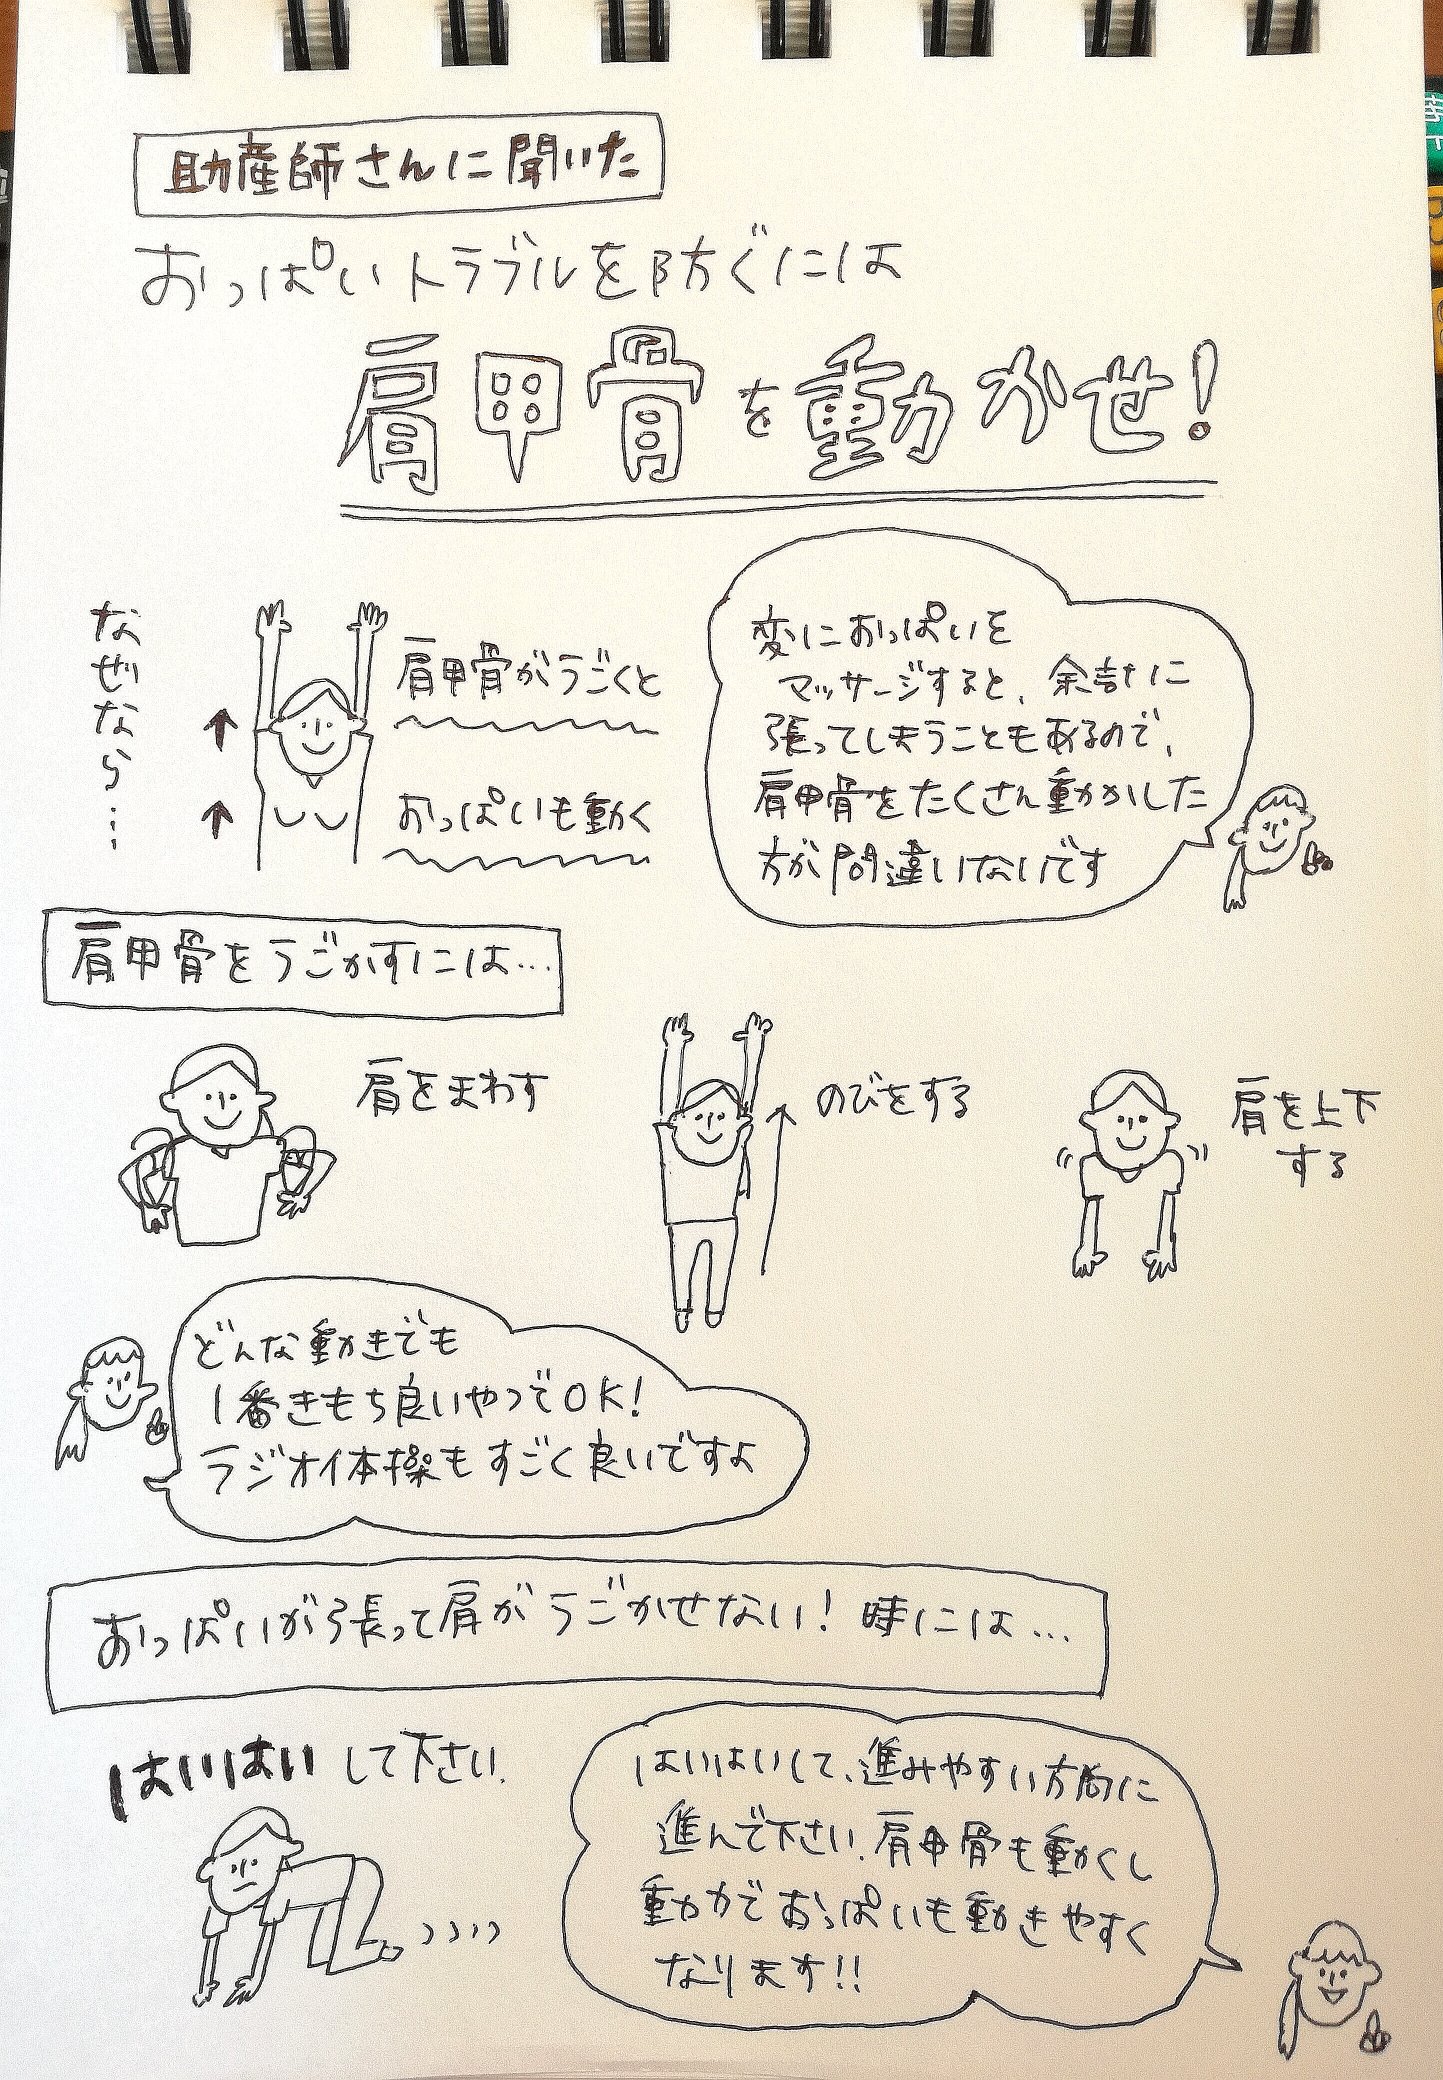 助産師さんに聞いた
おっぱいトラブルを防ぐには
肩甲骨を動かせ!
なぜなら…
肩甲骨がうごくと
おっぱいも動く
変におっぱいを
マッサージすると、余計に
張ってしまうこともあるので、
肩甲骨をたくさん動かした
方が間違いないです
肩甲骨をうごかすには…
肩をまわす
のびをする
肩を上下
する
どんな動きでも
1番きもち良いやつでOK!
ラジオ体操もすごく良いですよ
おっぱいが張って肩がうごかせない!時には…
はいはいして下さい.
はいはいして、進みやすい方向に
進んで下さい.肩甲骨も動くし
動力でおっぱいも動きやすく
なります!!